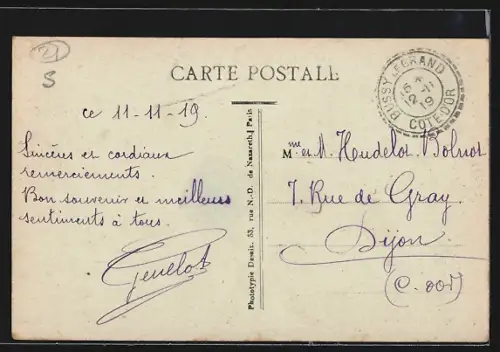 21
S
CARTE POSTALE
BUSSY-LE-GRAND
15 *
12 -11
19
COTE-D'OR
ce 11-11-19.
Sincères et cordiaux
remerciements.
Bon souvenir et meilleurs
sentiments à tous.
Phototypie Desaix. 53, rue N.-D. de Nazareth, Paris
Mme et M. Hudelot-Bolnot
7. Rue de Gray.
Dijon
(C. d'or)